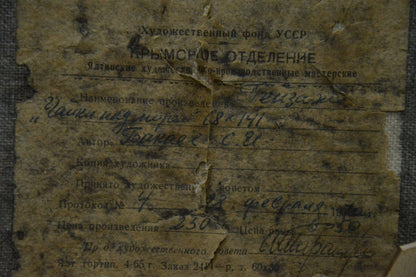 Художественный фонд УССР
КРЫМСКОЕ ОТДЕЛЕНИЕ
Ялтинские художественно-производственные мастерские
Наименование произведения Пейзаж
"Чайки над морем" 68 x 141
Автор С. И.
Копия художника
Принято художественным советом
Протокол № 4 февраля
Цена произведения 250 Цена
Пр-д художественного совета
Ял. гортип. 4-65 г. Заказ 2414—р, т. 60×50